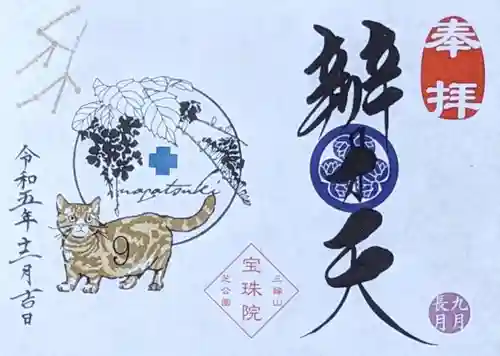 奉拝
辨才天
九月
長月
三縁山
宝珠院
芝公園
nagatsuki
9
令和五年十二月吉日